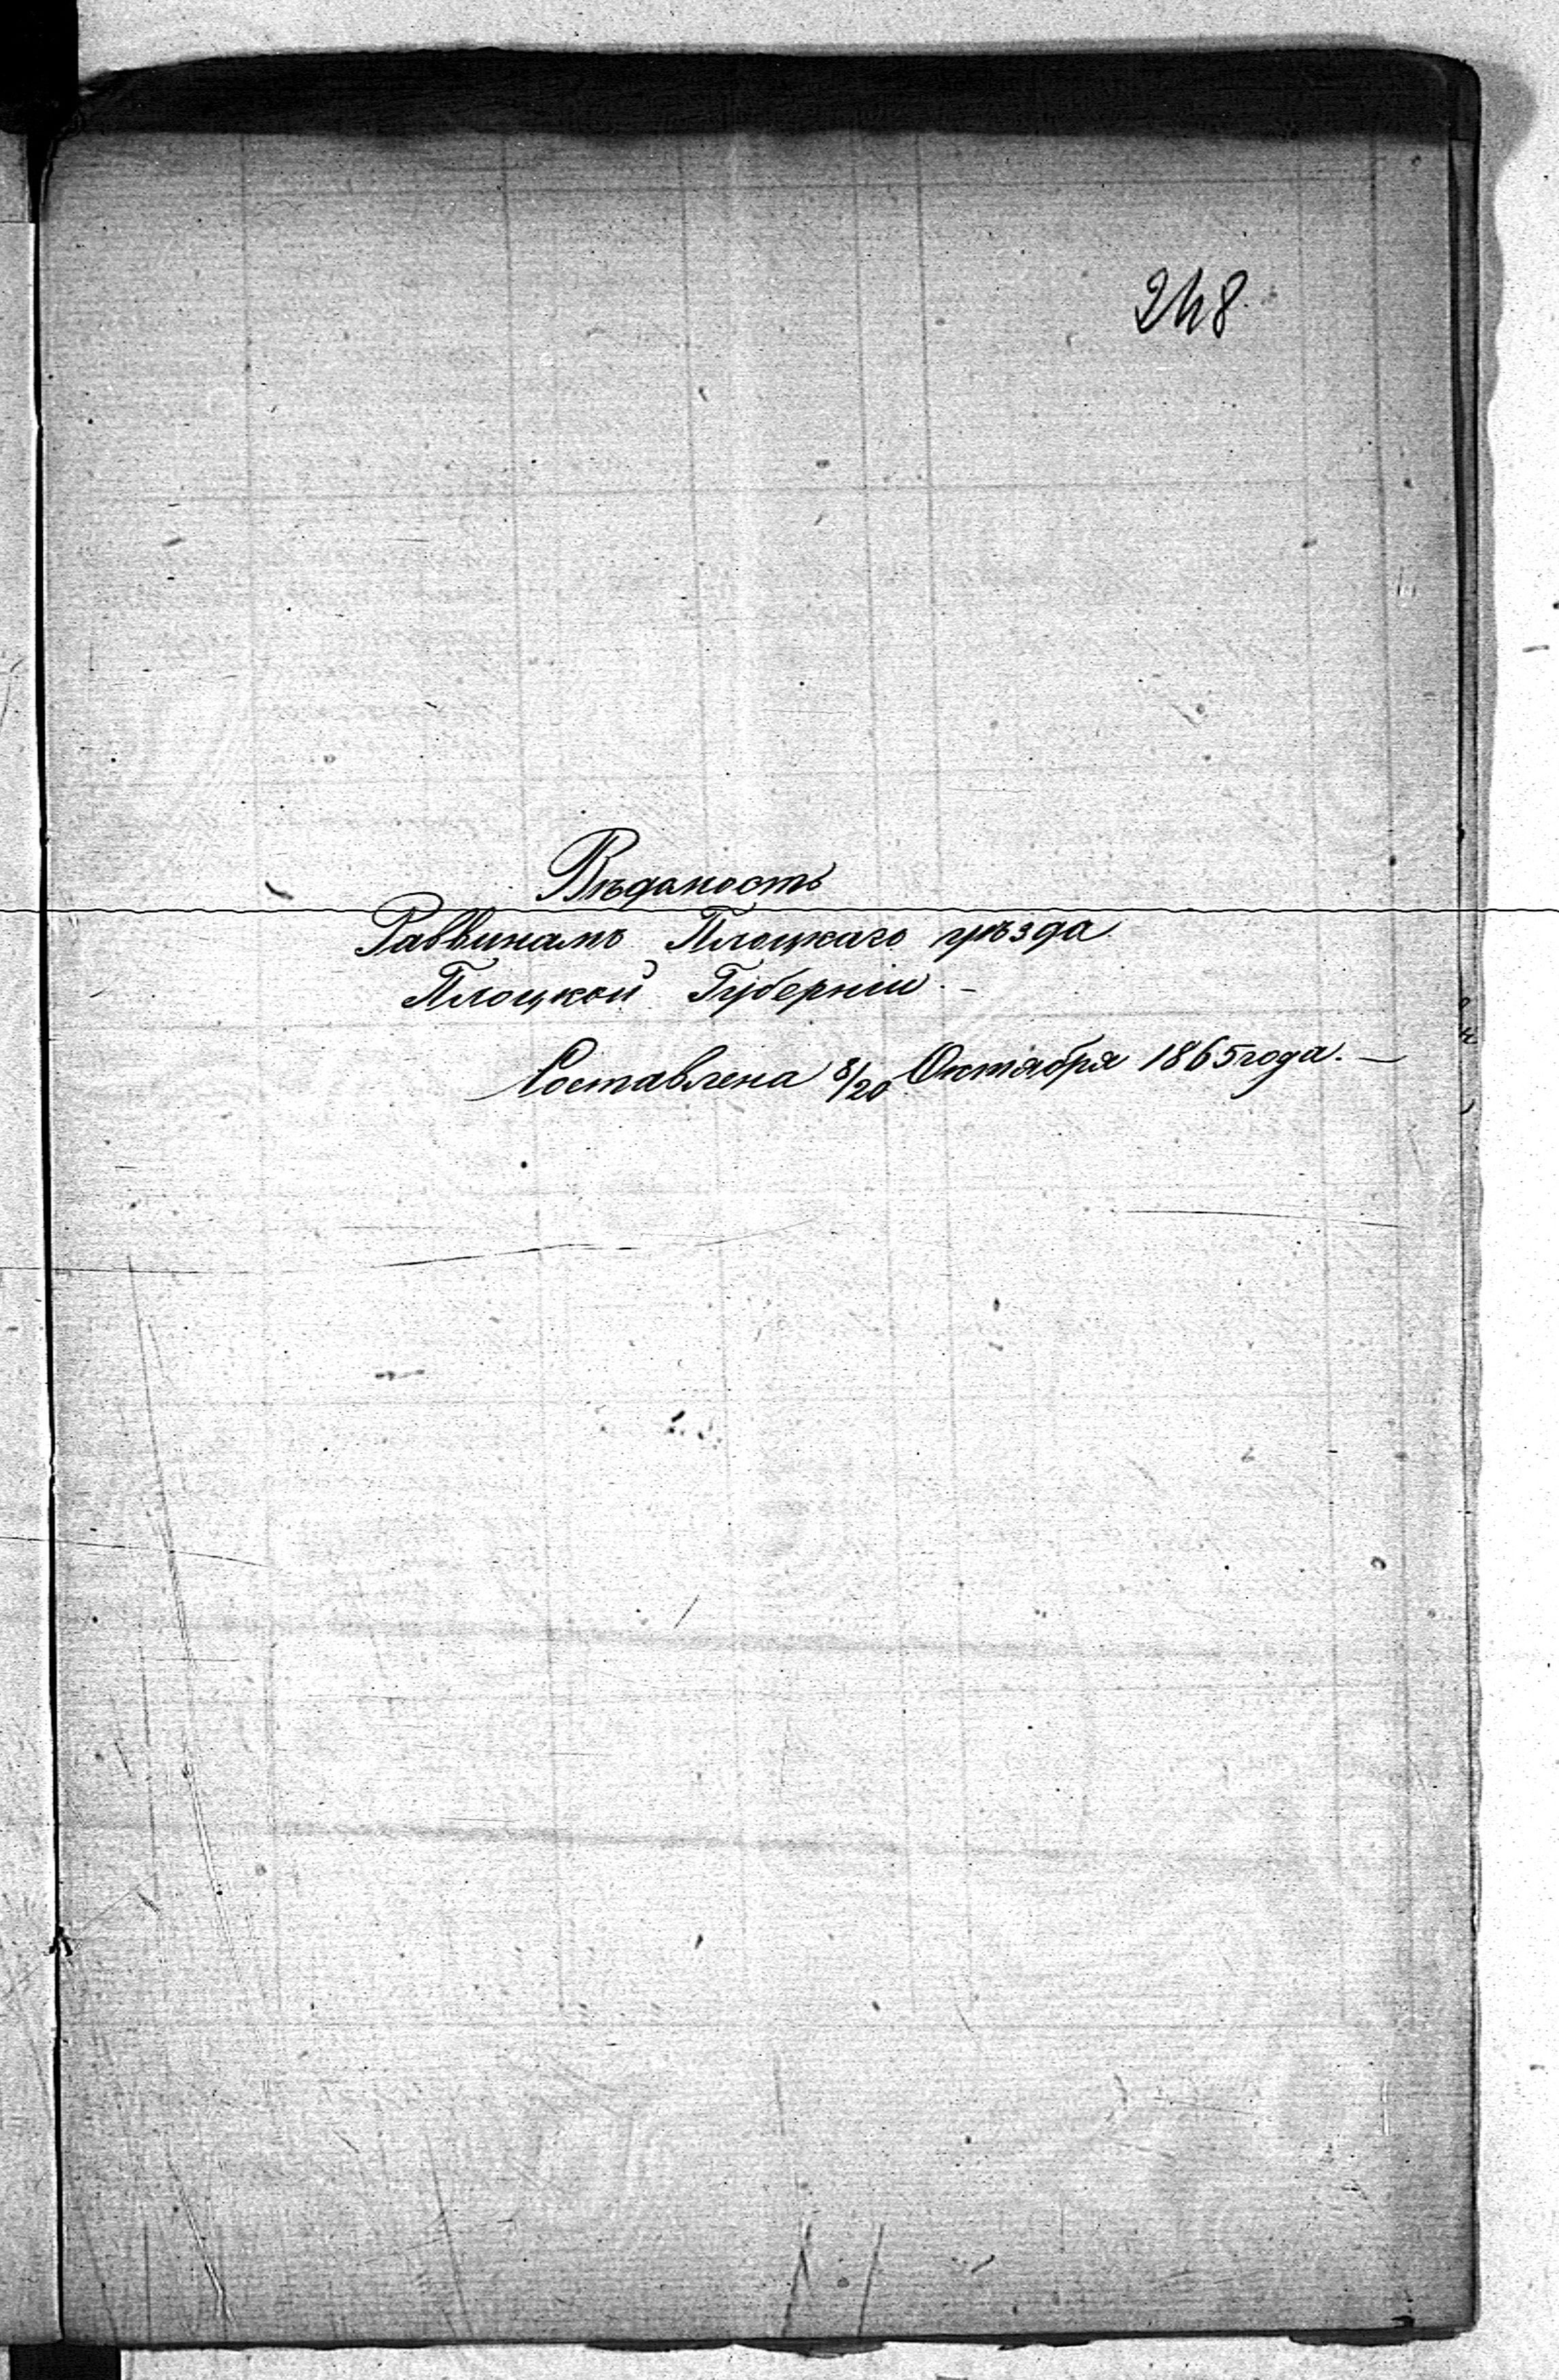 248
Вѣдамость
Раввинамъ Плоцкаго уѣзда
Плоцкой Губерніи. –
Составлена 8/20 Октября 1865 года. –